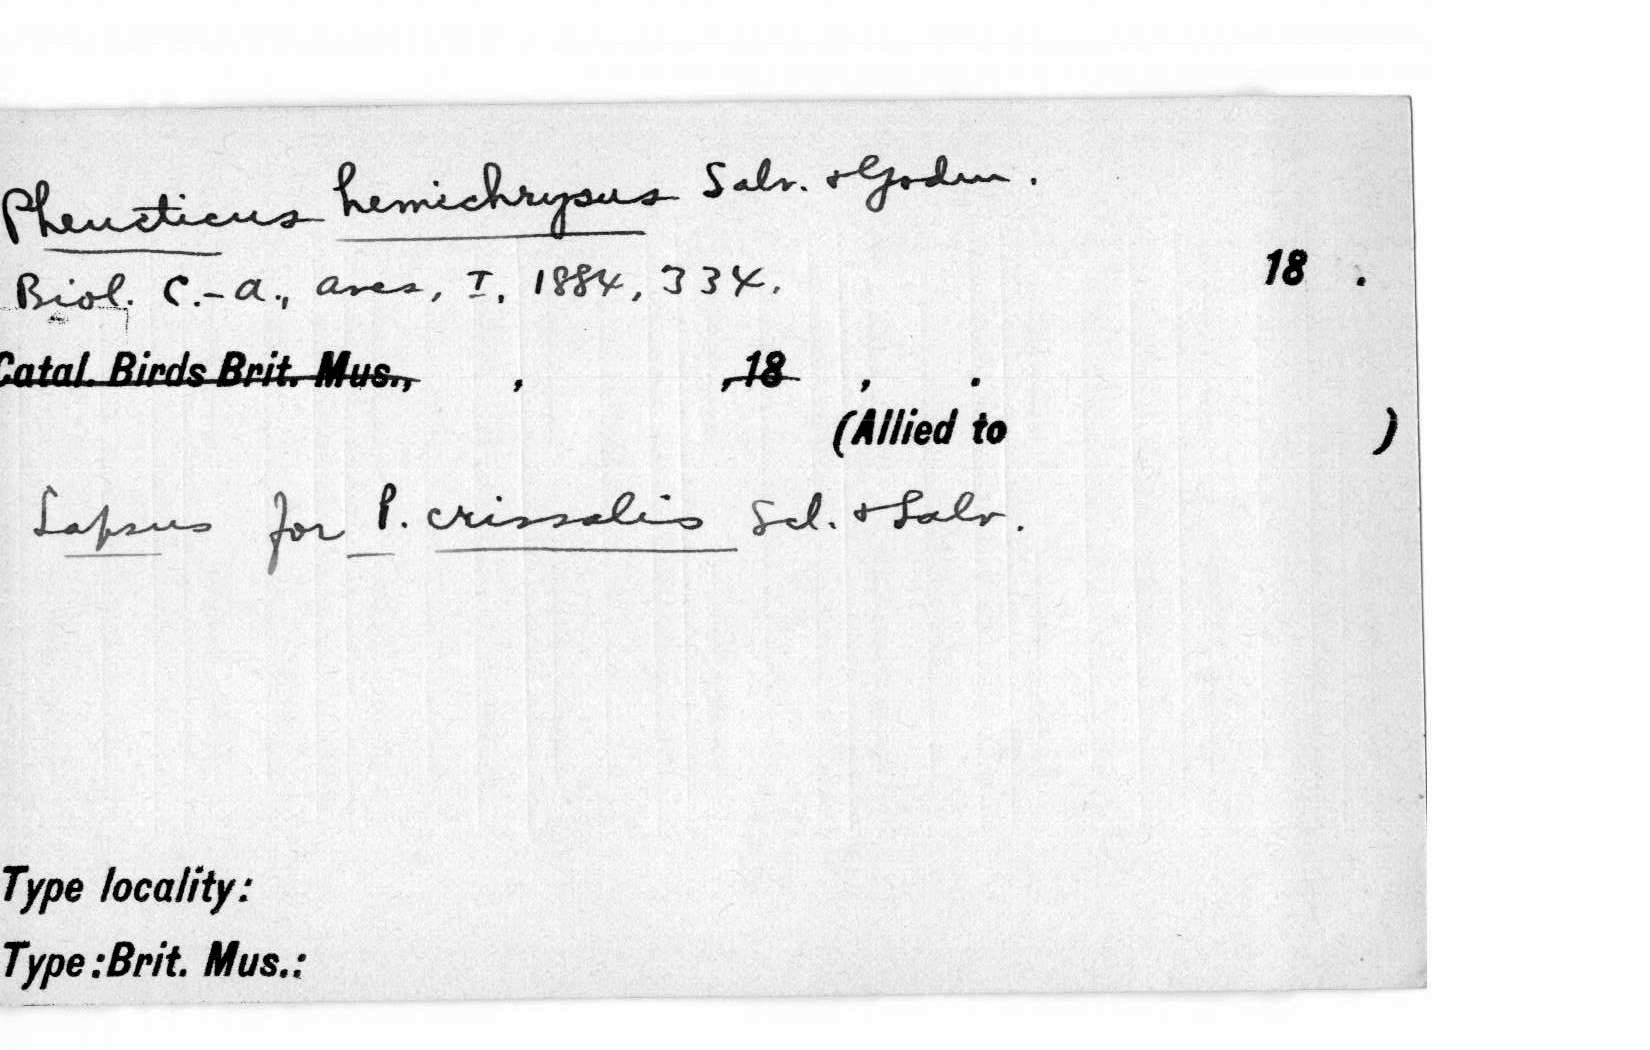 Pheucticus hemichrysus Salv. & Godm.
Biol. C.-A., Aves, I, 1884, 334. 18 .
Catal. Birds Brit. Mus., , , 18 , .
(Allied to )
Lapsus for P. crissalis Scl. & Salv.
Type locality:
Type: Brit. Mus.: